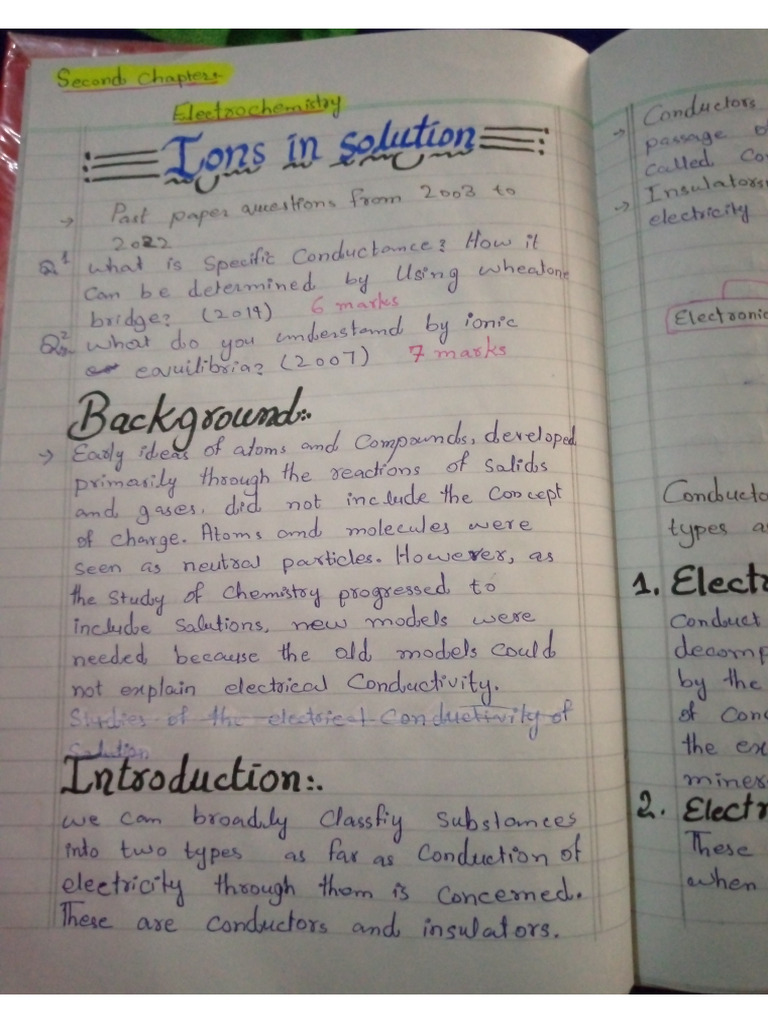 Second Chapter:-
Electrochemistry
Ions in solution
→ Past paper questions from 2003 to
2022
Q1 What is Specific Conductance? How it
Can be determined by Using wheatone
bridge? (2019) 6 marks
Q2. What do you understand by ionic
equilibria? (2007) 7 marks
Background:.
→ Early ideas of atoms and Compounds, developed
primarily through the reactions of Solids
and gases, did not include the Concept
of charge. Atoms and molecules were
seen as neutral particles. However, as
the study of Chemistry progressed to
include Solutions, new models were
needed because the old models Could
not explain electrical Conductivity.
Studies of the electrical Conductivity of
Solution
Introduction:.
we can broadly Classfiy Substances
into two types as far as Conduction of
electricity through them is Concerned.
These are conductors and insulators.
→ Conductors
passage
called,
→ Insulators
electricity
Electronic
types
1.
Conduct
by the
of
the
2.
These
when